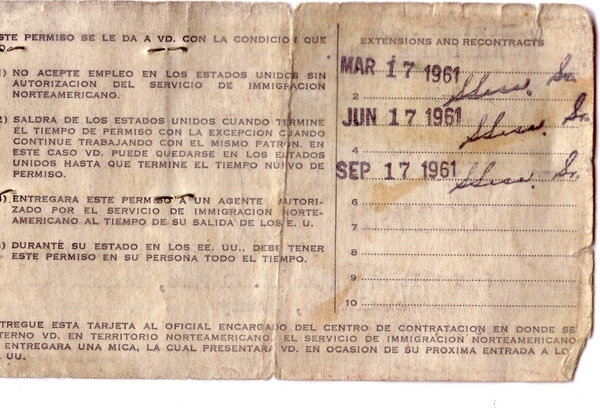 ESTE PERMISO SE LE DA A VD. CON LA CONDICION QUE
1) NO ACEPTE EMPLEO EN LOS ESTADOS UNIDOS SIN
AUTORIZACION DEL SERVICIO DE IMMIGRACION
NORTEAMERICANO.
2) SALDRA DE LOS ESTADOS UNIDOS CUANDO TERMINE
EL TIEMPO DE PERMISO CON LA EXCEPCION CUANDO
CONTINUE TRABAJANDO CON EL MISMO PATRON. EN
ESTE CASO VD. PUEDE QUEDARSE EN LOS ESTADOS
UNIDOS HASTA QUE TERMINE EL TIEMPO NUEVO DE
PERMISO.
) ENTREGARA ESTE PERMISO A UN AGENTE AUTORI-
ZADO POR EL SERVICIO DE IMMIGRACION NORTE-
AMERICANO AL TIEMPO DE SU SALIDA DE LOS E. U.
) DURANTE SU ESTADO EN LOS EE. UU., DEBE TENER
ESTE PERMISO EN SU PERSONA TODO EL TIEMPO.
EXTENSIONS AND RECONTRACTS
MAR 17 1961
2
JUN 17 1961
4
SEP 17 1961
6
7
8
9
10
TREGUE ESTA TARJETA AL OFICIAL ENCARGADO DEL CENTRO DE CONTRATACION EN DONDE SE
TERNO VD. EN TERRITORIO NORTEAMERICANO. EL SERVICIO DE IMMIGRACION NORTEAMERICANO
ENTREGARA UNA MICA, LA CUAL PRESENTARA VD. EN OCASION DE SU PROXIMA ENTRADA A LO
UU.